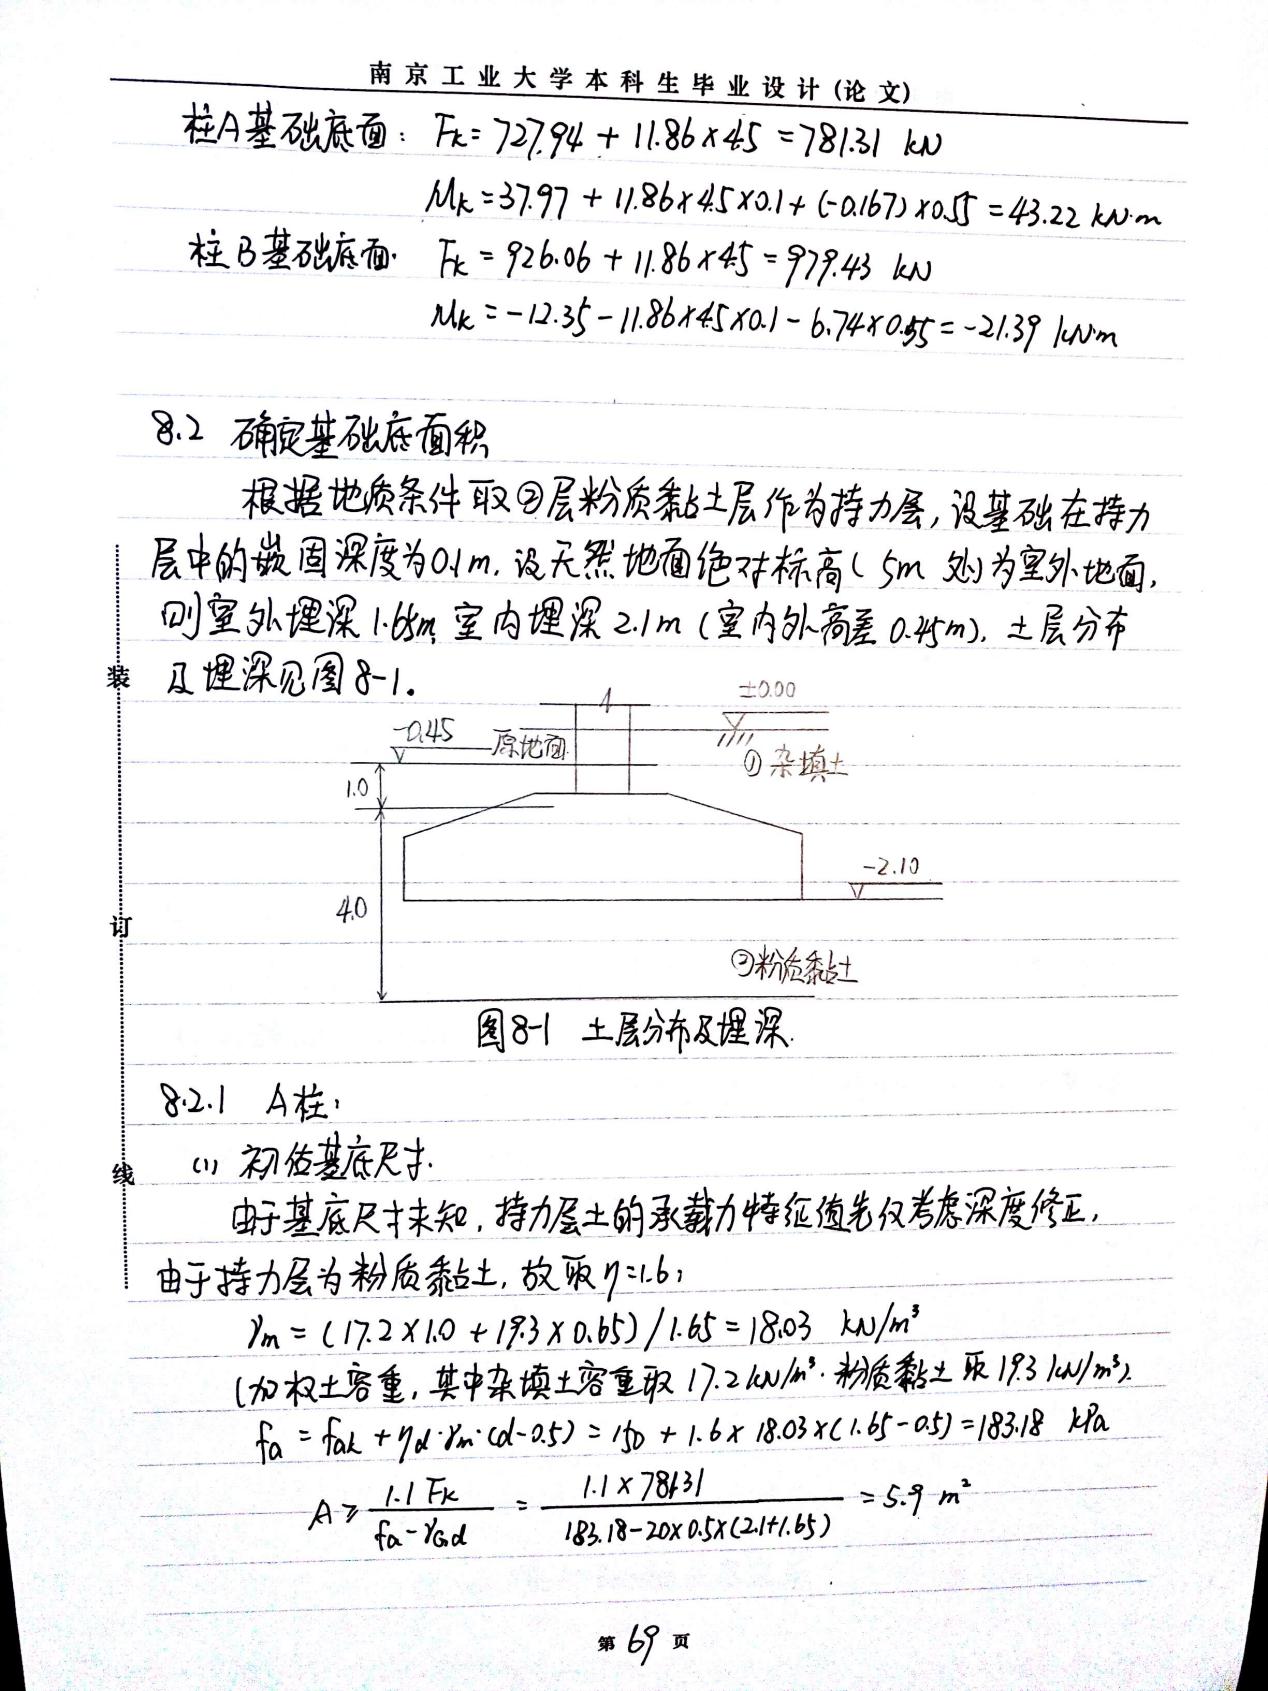 南京工业大学本科生毕业设计(论文)
柱A基础底面: Fk=727.94+11.86×4.5=781.31 kN
Mk=37.97+11.86×4.5×0.1+(-0.167)×0.55=43.22 kN·m
柱B基础底面. Fk=926.06+11.86×4.5=979.43 kN
Mk=-12.35-11.86×4.5×0.1-6.74×0.55=-21.39 kN·m
8.2 确定基础底面积
根据地质条件取②层粉质黏土层作为持力层,设基础在持力
层中的嵌固深度为0.1m,设天然地面绝对标高(5m处)为室外地面,
则室外埋深1.65m,室内埋深2.1m(室内外高差0.45m),土层分布
及埋深见图8-1。
±0.00
-0.45 原地面
①杂填土
1.0
-2.10
4.0
②粉质黏土
图8-1 土层分布及埋深.
8.2.1 A柱:
(1) 初估基底尺寸.
由于基底尺寸未知,持力层土的承载力特征值先仅考虑深度修正,
由于持力层为粉质黏土,故取η=1.6;
γm=(17.2×1.0+19.3×0.65)/1.65=18.03 kN/m³
(加权土容重,其中杂填土容重取17.2kN/m³.粉质黏土取19.3kN/m³).
fa=fak+ηd·γm·(d-0.5)=150+1.6×18.03×(1.65-0.5)=183.18 kPa
A≥1.1Fk/(fa-γG·d)=1.1×781.31/(183.18-20×0.5×(2.1+1.65))=5.9 m²
第69页
装
订
线